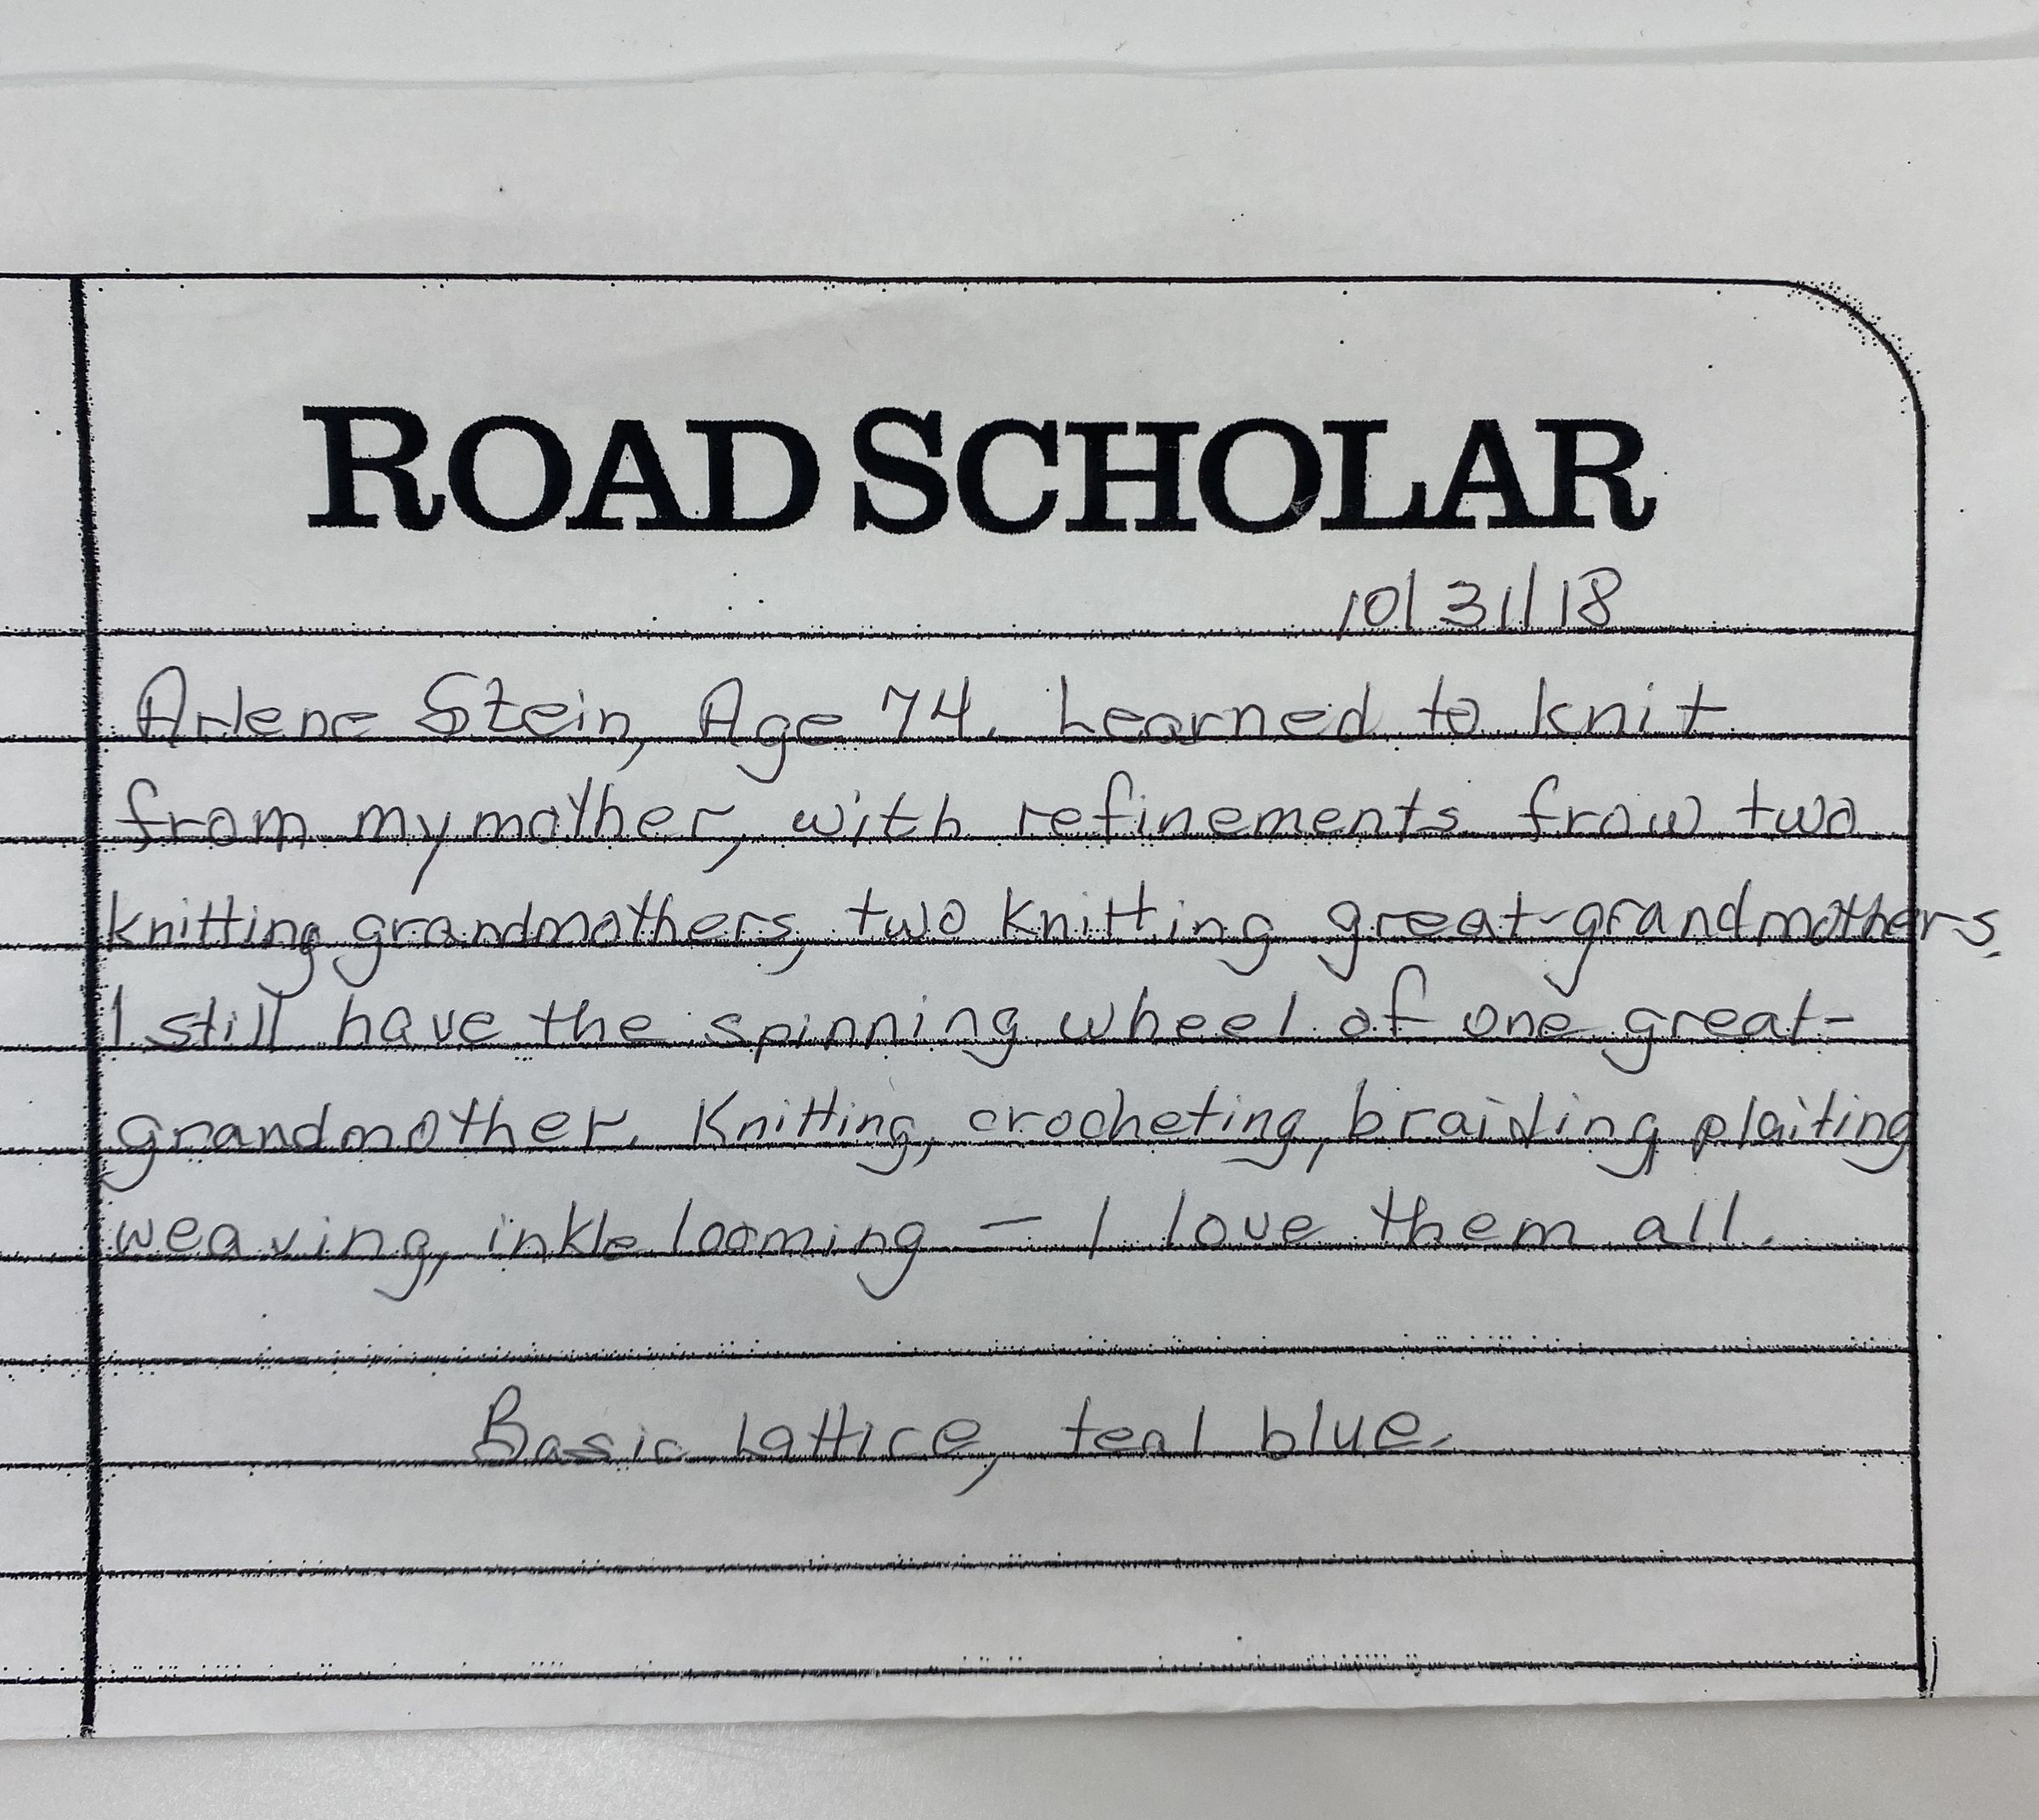 ROAD SCHOLAR
10/31/18
Arlene Stein, Age 74. Learned to knit
from my mother, with refinements from two
knitting grandmothers, two knitting great-grandmothers.
I still have the spinning wheel of one great-
grandmother. Knitting, crocheting, braiding, plaiting
weaving, inkle looming — I love them all.
Basic Lattice, teal blue.